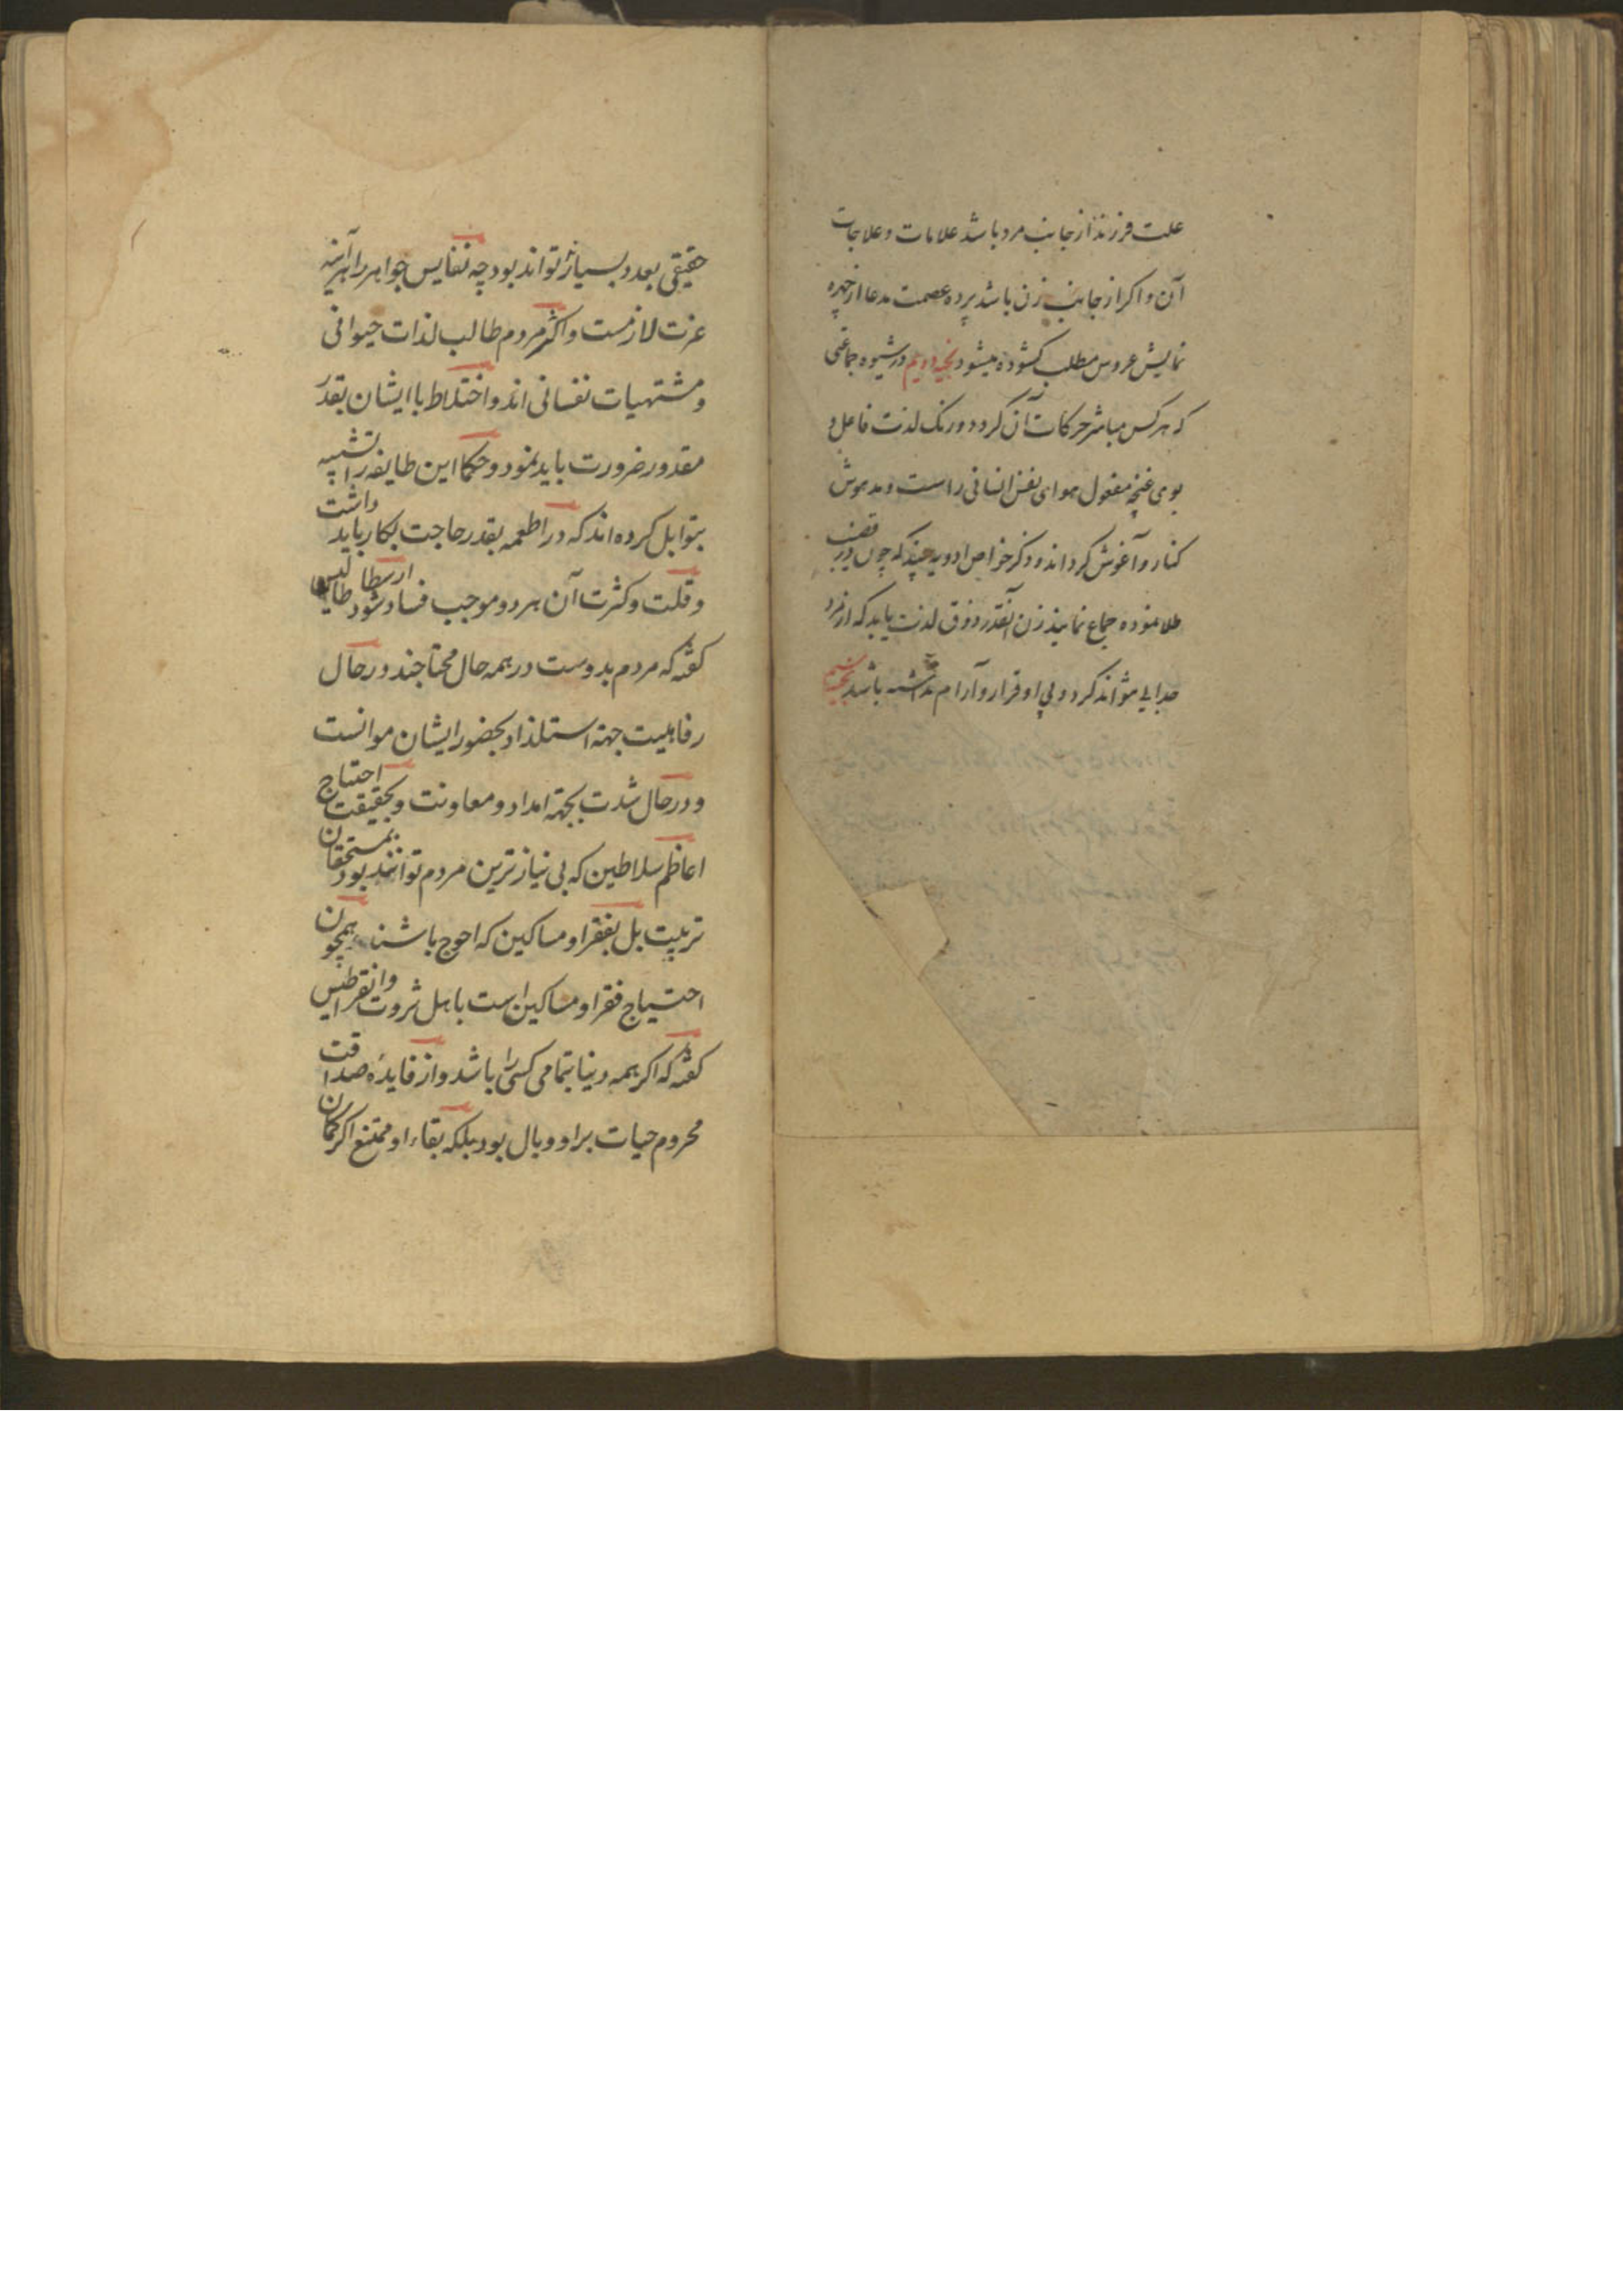 علت فرزند از جانب مرد باشد علامات و علاجات
آن و اکر از جانب زن باشد پرده عصمت مدعا از چهره
نمایش عروس مطلب کشوده میشود دویم در شیوه جماعی
که هر کس مباشر حرکات آن کردد و رنک لذت فاعل و
بوی غنچه مفعول هوای نفس انسانی راست و مدهوش
کنار و آغوش کرداند و ذکر خواص ادویه چند که چون در قضیب
طلا نموده جماع نمایند زن آنقدر ذوق لذت یابد که از مرد
جدایی نتواند کرد و بی او قرار و آرام نداشته باشد
حقیقی بعدد بسیار نتواند بود چه نفایس جواهر را هر آینه
عزت لازمست و اکثر مردم طالب لذات حیوانی
و مشتهیات نفسانی اند و اختلاط با ایشان بقدر
مقدور ضرورت باید نمود و حکما این طایفه را تشبیه
بتوابل کرده اند که در اطعمه بقدر حاجت بکار باید داشت
و قلت و کثرت آن هر دو موجب فساد شود ارسطاطالیس
کفته که مردم بدوست در همه حال محتاجند در حال
رفاهیت جهة استلذاذ بحضور ایشان موانست
و در حال شدت بجهة امداد و معاونت و بحقیقت احتیاج
اعاظم سلاطین که بی نیازترین مردم توانند بود بمستحقان
تربیت بل بفقرا و مساکین که احوج باشند همچون
احتیاج فقرا و مساکین است باهل ثروت
کفته که اکر همه دنیا بتمامی کسی را باشد و از فایده صداقت
محروم حیات بر او وبال بود بلکه بقاء او ممتنع اکر کمان